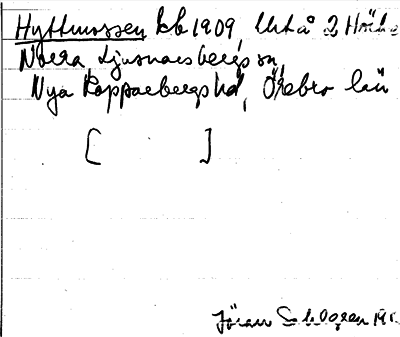 Hyttmossen kb 1909, Urtå 2 Hörks
Norra, Ljusnarsbergs sn,
Nya Kopparbergs hd, Örebro län
[ ]
Jöran Sahlgren 19